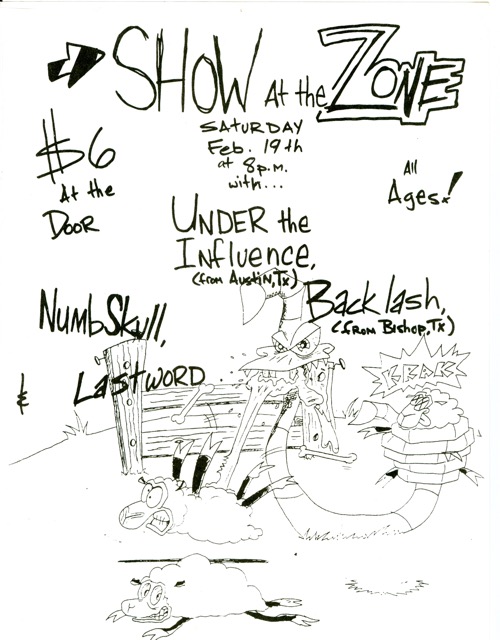 SHOW At the ZONE
SATURDAY
Feb. 19th
at 8p.m.
with...
$6
At the
Door
All
Ages!
UNDER the
Influence,
(from Austin, Tx)
Backlash,
(from Bishop, Tx)
NumbSkull,
& Lastword
KRAK